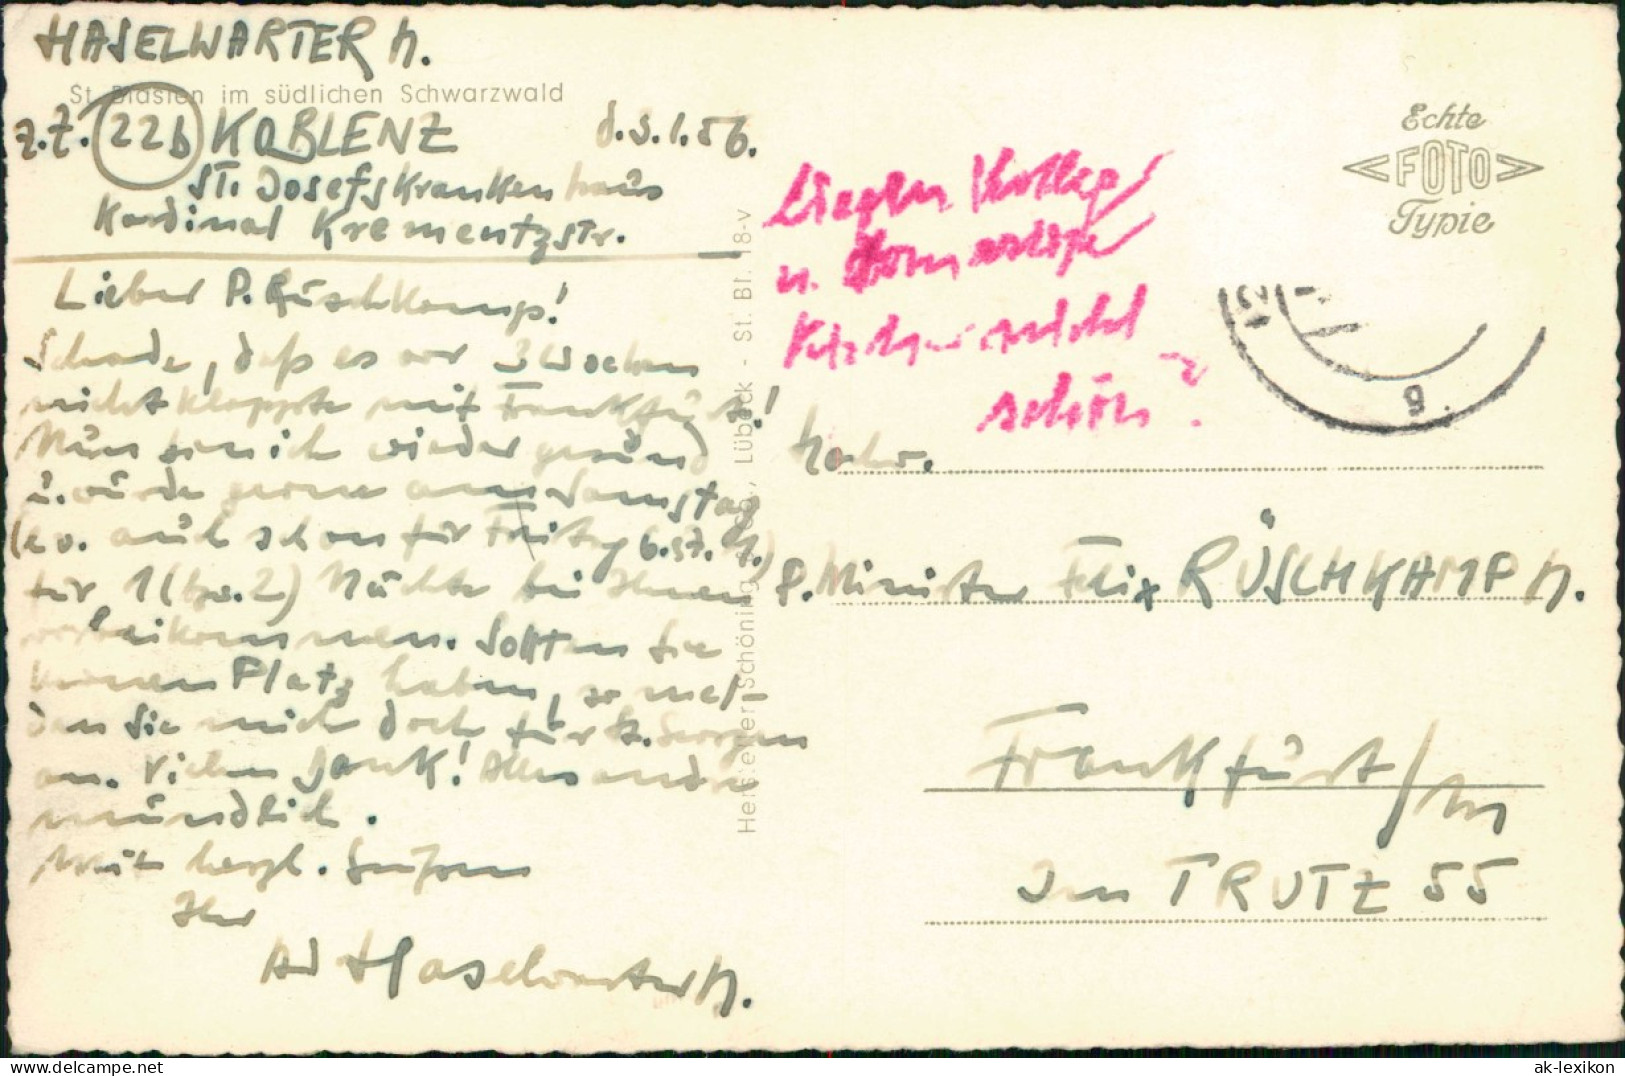 HASELWARTER
St. Blasien im südlichen Schwarzwald
z.Z. 22b KOBLENZ d. 3.1.56.
ST. Josefskrankenhaus
Kardinal Krementzstr.
Lieber P. Rüschkamp!
Schade, daß es vor 3 Wochen
nicht klappte mit Frankfurt!
Nun bin ich wieder gesund
u. würde gerne am Samstag
(ev. auch schon für Freitag 6. st. 1.)
für 1 (bzw. 2) Nächte bei Ihnen
vorbeikommen. Sollten Sie
keinen Platz haben, so mel-
den Sie mich doch für St. Georgen
an. Vielen Dank! Alles andre
mündlich.
Mit herzl. Grüßen
Ihr
Ad Haselwarter
Hersteller: Schöning & Co., Lübeck - St. Bl. 18-v
u.
nicht
schön?
Echte
FOTO
Typie
g
Hochw.
P. Minister Felix RÜSCHKAMP
Frankfurt/M
Im TRUTZ 55
ak-lexikon.de
www.ak-lexikon